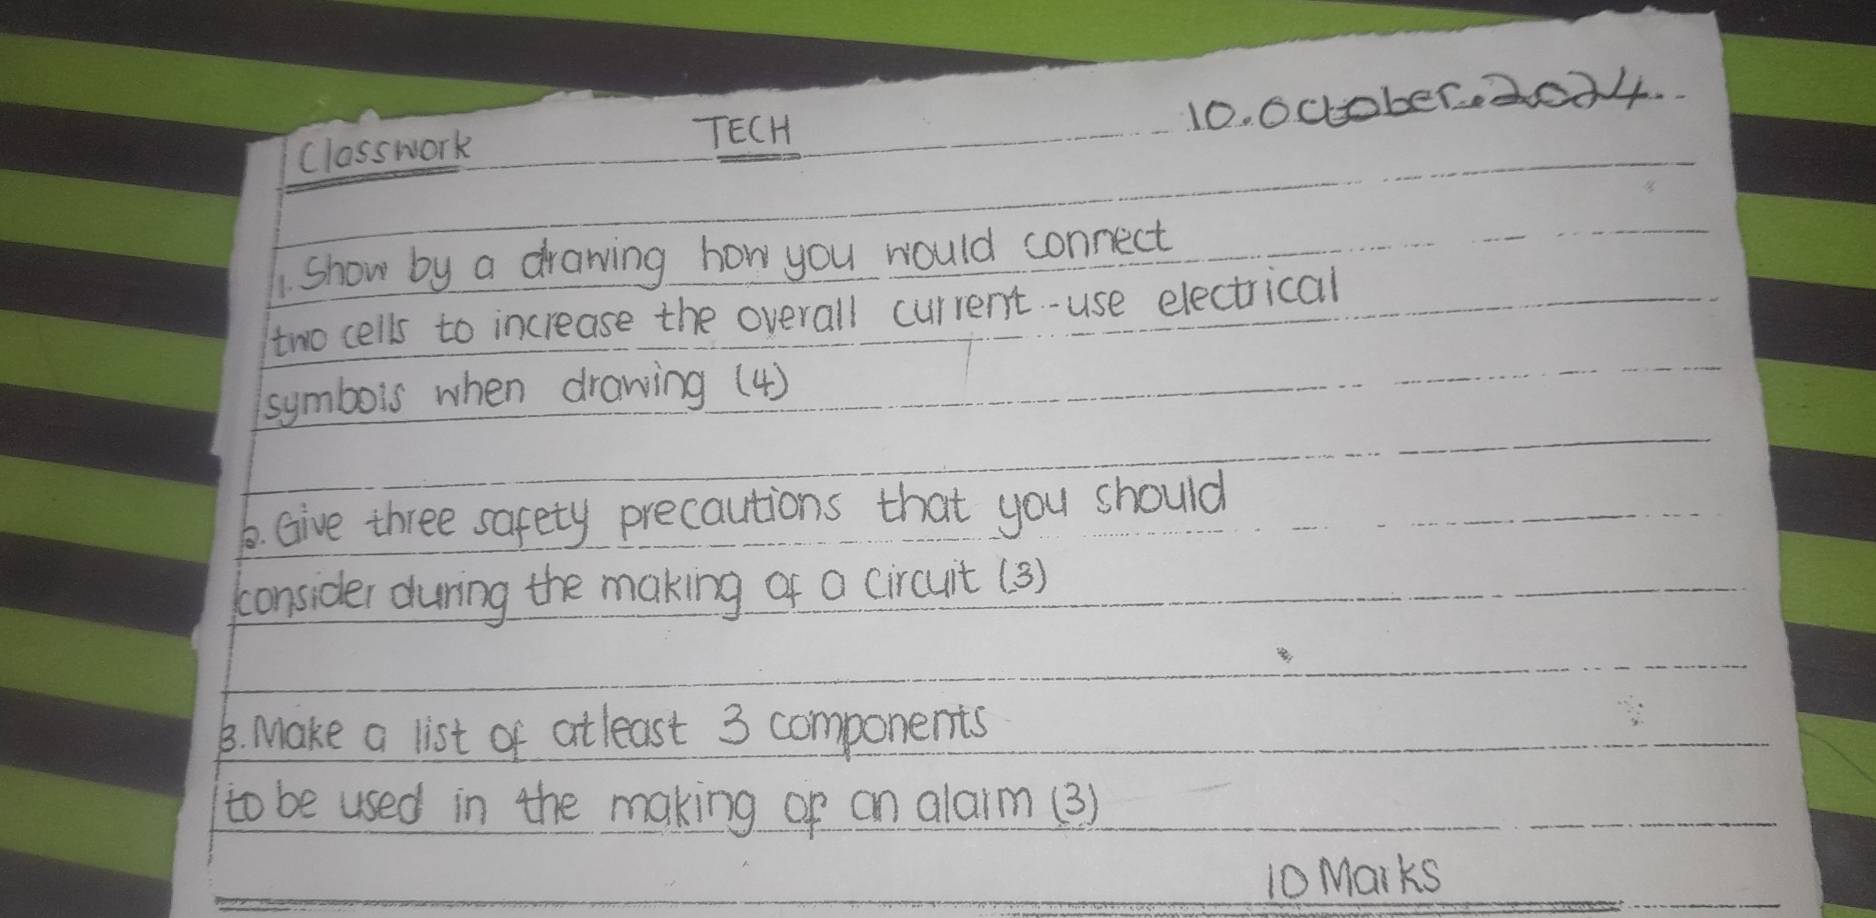 Classwork TECH 10.October.2024.
1. Show by a drawing how you would connect
two cells to increase the overall current - use electrical
symbols when drawing (4)
2. Give three safety precautions that you should
consider during the making of a circuit (3)
3. Make a list of atleast 3 components
to be used in the making of an alarm (3)
10 Marks